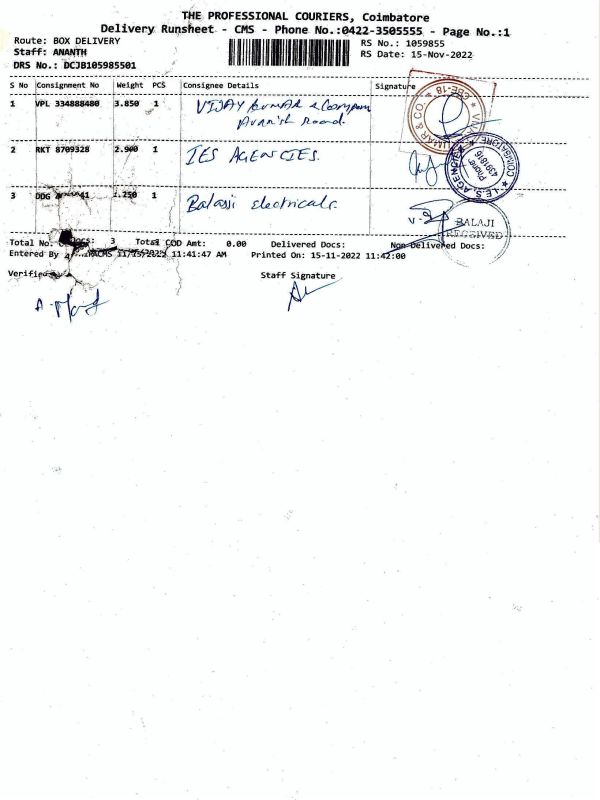 THE PROFESSIONAL COURIERS, Coimbatore
Delivery Runsheet - CMS - Phone No.:0422-3505555 - Page No.:1
Route: BOX DELIVERY
RS No.: 1059855
Staff: ANANTH
RS Date: 15-Nov-2022
DRS No.: DCJB105985501
S No Consignment No Weight PCS Consignee Details Signature
1 VPL 334888480 3.850 1 VIJAY KUMAR & Company
Avanish Road.
2 RKT 8709328 2.900 1 IES AGENCIES.
3 DDG 41 1.250 1 Balaji Electricals
I.E.S. AGENCIES COIMBATORE
Phone: 4391816
BALAJI
RECEIVED
Total No. 3 Total COD Amt: 0.00 Delivered Docs: Non Delivered Docs:
Entered By 11:41:47 AM Printed On: 15-11-2022 11:42:00
Verified Staff Signature